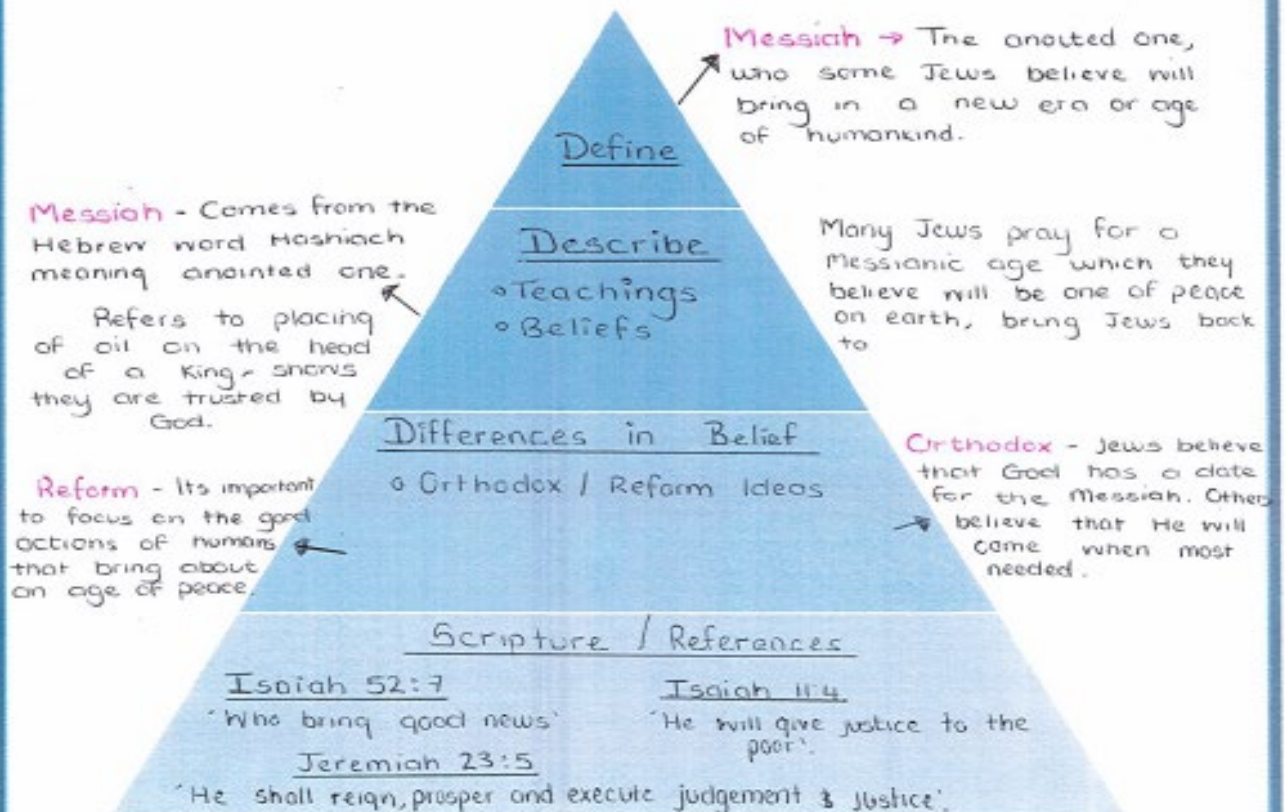 Messiah → The anoited one,
who some Jews believe will
bring in a new era or age
of humankind.
Define
Messiah - Comes from the
Hebrew word Mashiach
meaning anointed one.
Refers to placing
of oil on the head
of a King - shows
they are trusted by
God.
Describe
Teachings
Beliefs
Many Jews pray for a
Messianic age which they
believe will be one of peace
on earth, bring Jews back
to
Differences in Belief
Orthodox / Reform Ideas
Reform - Its important
to focus on the good
actions of humans
that bring about
an age of peace.
Orthodox - Jews believe
that God has a date
for the Messiah. Others
believe that He will
come when most
needed.
Scripture / References
Isaiah 52:7
'Who bring good news'
Isaiah 11:4
'He will give justice to the
poor'.
Jeremiah 23:5
'He shall reign, prosper and execute judgement & justice'.